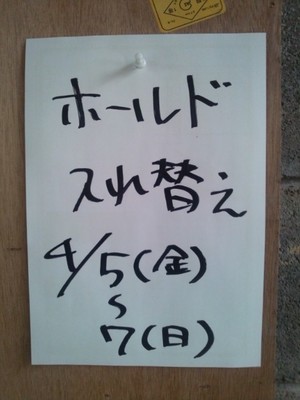 ホールド
入れ替え
4/5(金)
〜
7(日)